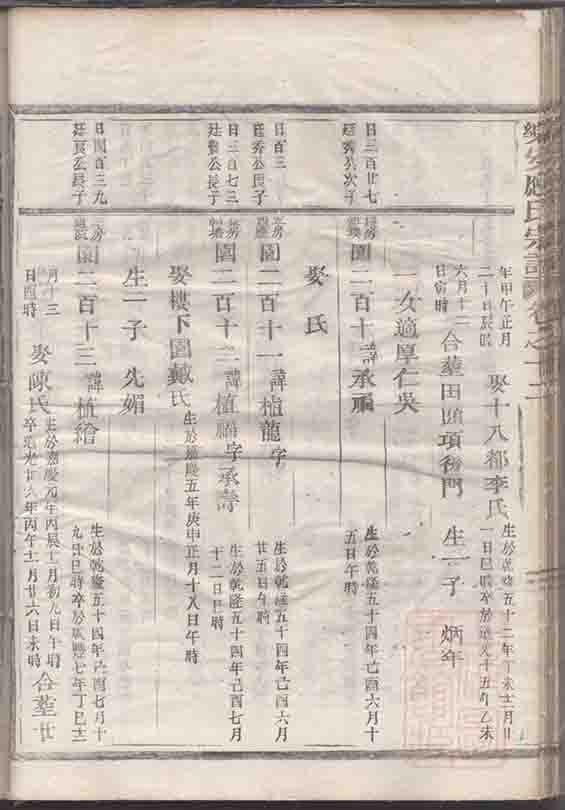 年甲午正月
二十日辰時
娶十八都李氏
生於乾隆五十二年丁未十一月廿
一日巳時卒於道光十五年乙未
六月十二
日寅時
合塟田頭項後門
生一子
炳年
一女適厚仁吳
日三百廿七
廷秀公次子
園二百十
諱承爾
生於乾隆五十四年己酉六月十
五日午時
娶
氏
日百三
廷秀公長子
園二百十一
諱植龍字
生於乾隆五十四年己酉六月
廿五日午時
日三百七三
公長子
園二百十二
諱植
字承壽
生於乾隆五十四年己酉七月
十二日巳時
娶樓下園戴氏
生於嘉慶五年庚申正月十八日午時
生一子
先媚
日四百三九
廷良公長子
園二百十三
諱植繪
生於乾隆五十四年己酉七月十
九日巳時卒於咸豐七年丁巳十二
月十三
日酉時
娶陳氏
生於嘉慶元年丙辰十月初九日午時
卒道光廿六年丙午十一月廿六日未時
合塟廿